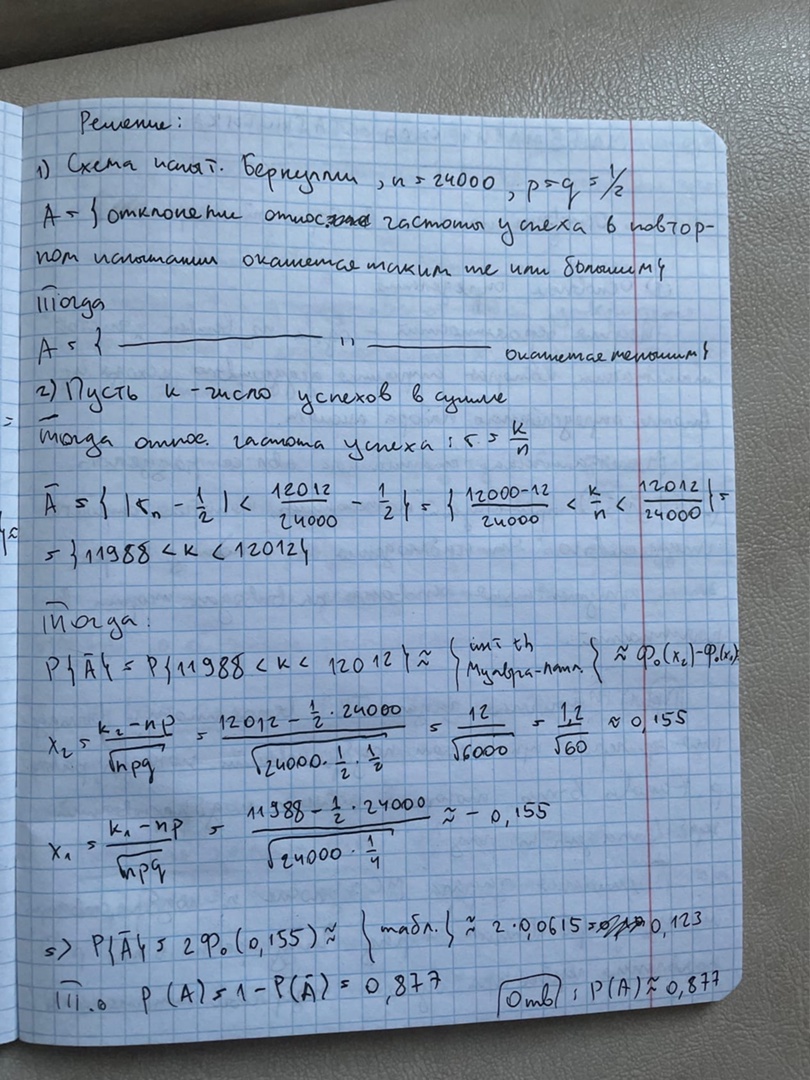 Решение:
1) Схема испыт. Бернулли, n = 24000, p = q = 1/2
A = { отклонение относ. частоты успеха в повтор-
ном испытании окажется таким же или большим}
Тогда
A = { ——— " ——— окажется меньшим}
2) Пусть k - число успехов в сумме
=
Тогда относ. частота успеха: r = k/n
Ā = { |r_n - 1/2| < 12012/24000 - 1/2 } = { (12000-12)/24000 < k/n < 12012/24000 } =
= {11988 < k < 12012}
Тогда:
P{Ā} = P{11988 < k < 12012} ≈ { инт th Муавра-Лапл. } ≈ Φ₀(x₂) - Φ₀(x₁)
x₂ = (k₂ - np)/√(npq) = (12012 - 1/2 · 24000)/√(24000 · 1/2 · 1/2) = 12/√6000 = 1,2/√60 ≈ 0,155
x₁ = (k₁ - np)/√(npq) = (11988 - 1/2 · 24000)/√(24000 · 1/4) ≈ - 0,155
5) P{Ā} = 2Φ₀(0,155) ≈ {табл.} ≈ 2·0,0615 = 0,123
Т.о P(A) = 1 - P(Ā) = 0,877 Отв: P(A) ≈ 0,877